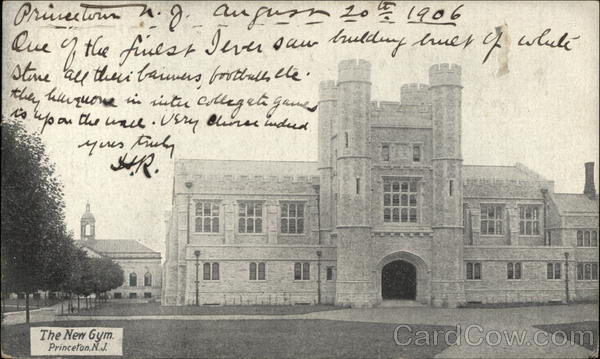 Princeton N.J. August 20th 1906
One of the finest I ever saw building built of white
stone all their banners, footballs etc.
they have won in inter collegate games
is upon the wall. Very choice indeed
yours truly
H.R.
The New Gym.
Princeton, N.J.
CardCow.com